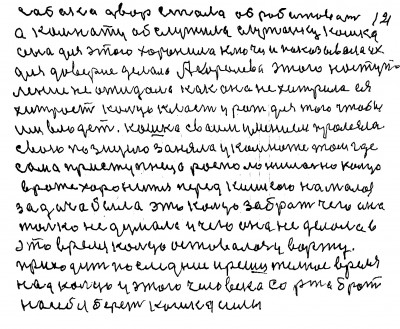 собака двор стала обработоват 12
а комнату обслужила служанку кошка
сена для этого хоронила ключи и показывала их
для доверие делала Акоролева этого поступ
ление не ожидала как она не хитрила ея
хитрост колцо класт у рот для того чтобы
им влодет. кошка своим умилем провела
свою позицию заняла у комнате том где
сама приступнецо росположилас но колцо
врот хоронится перед кишкою настоя
задача была это колцо забрат чего она
толко не думала и чего она не делола в
это время колцо оставалос у ворту.
приходит последние и решително время
над колцо у этого человека со рта брат
на себя берет кошка силы